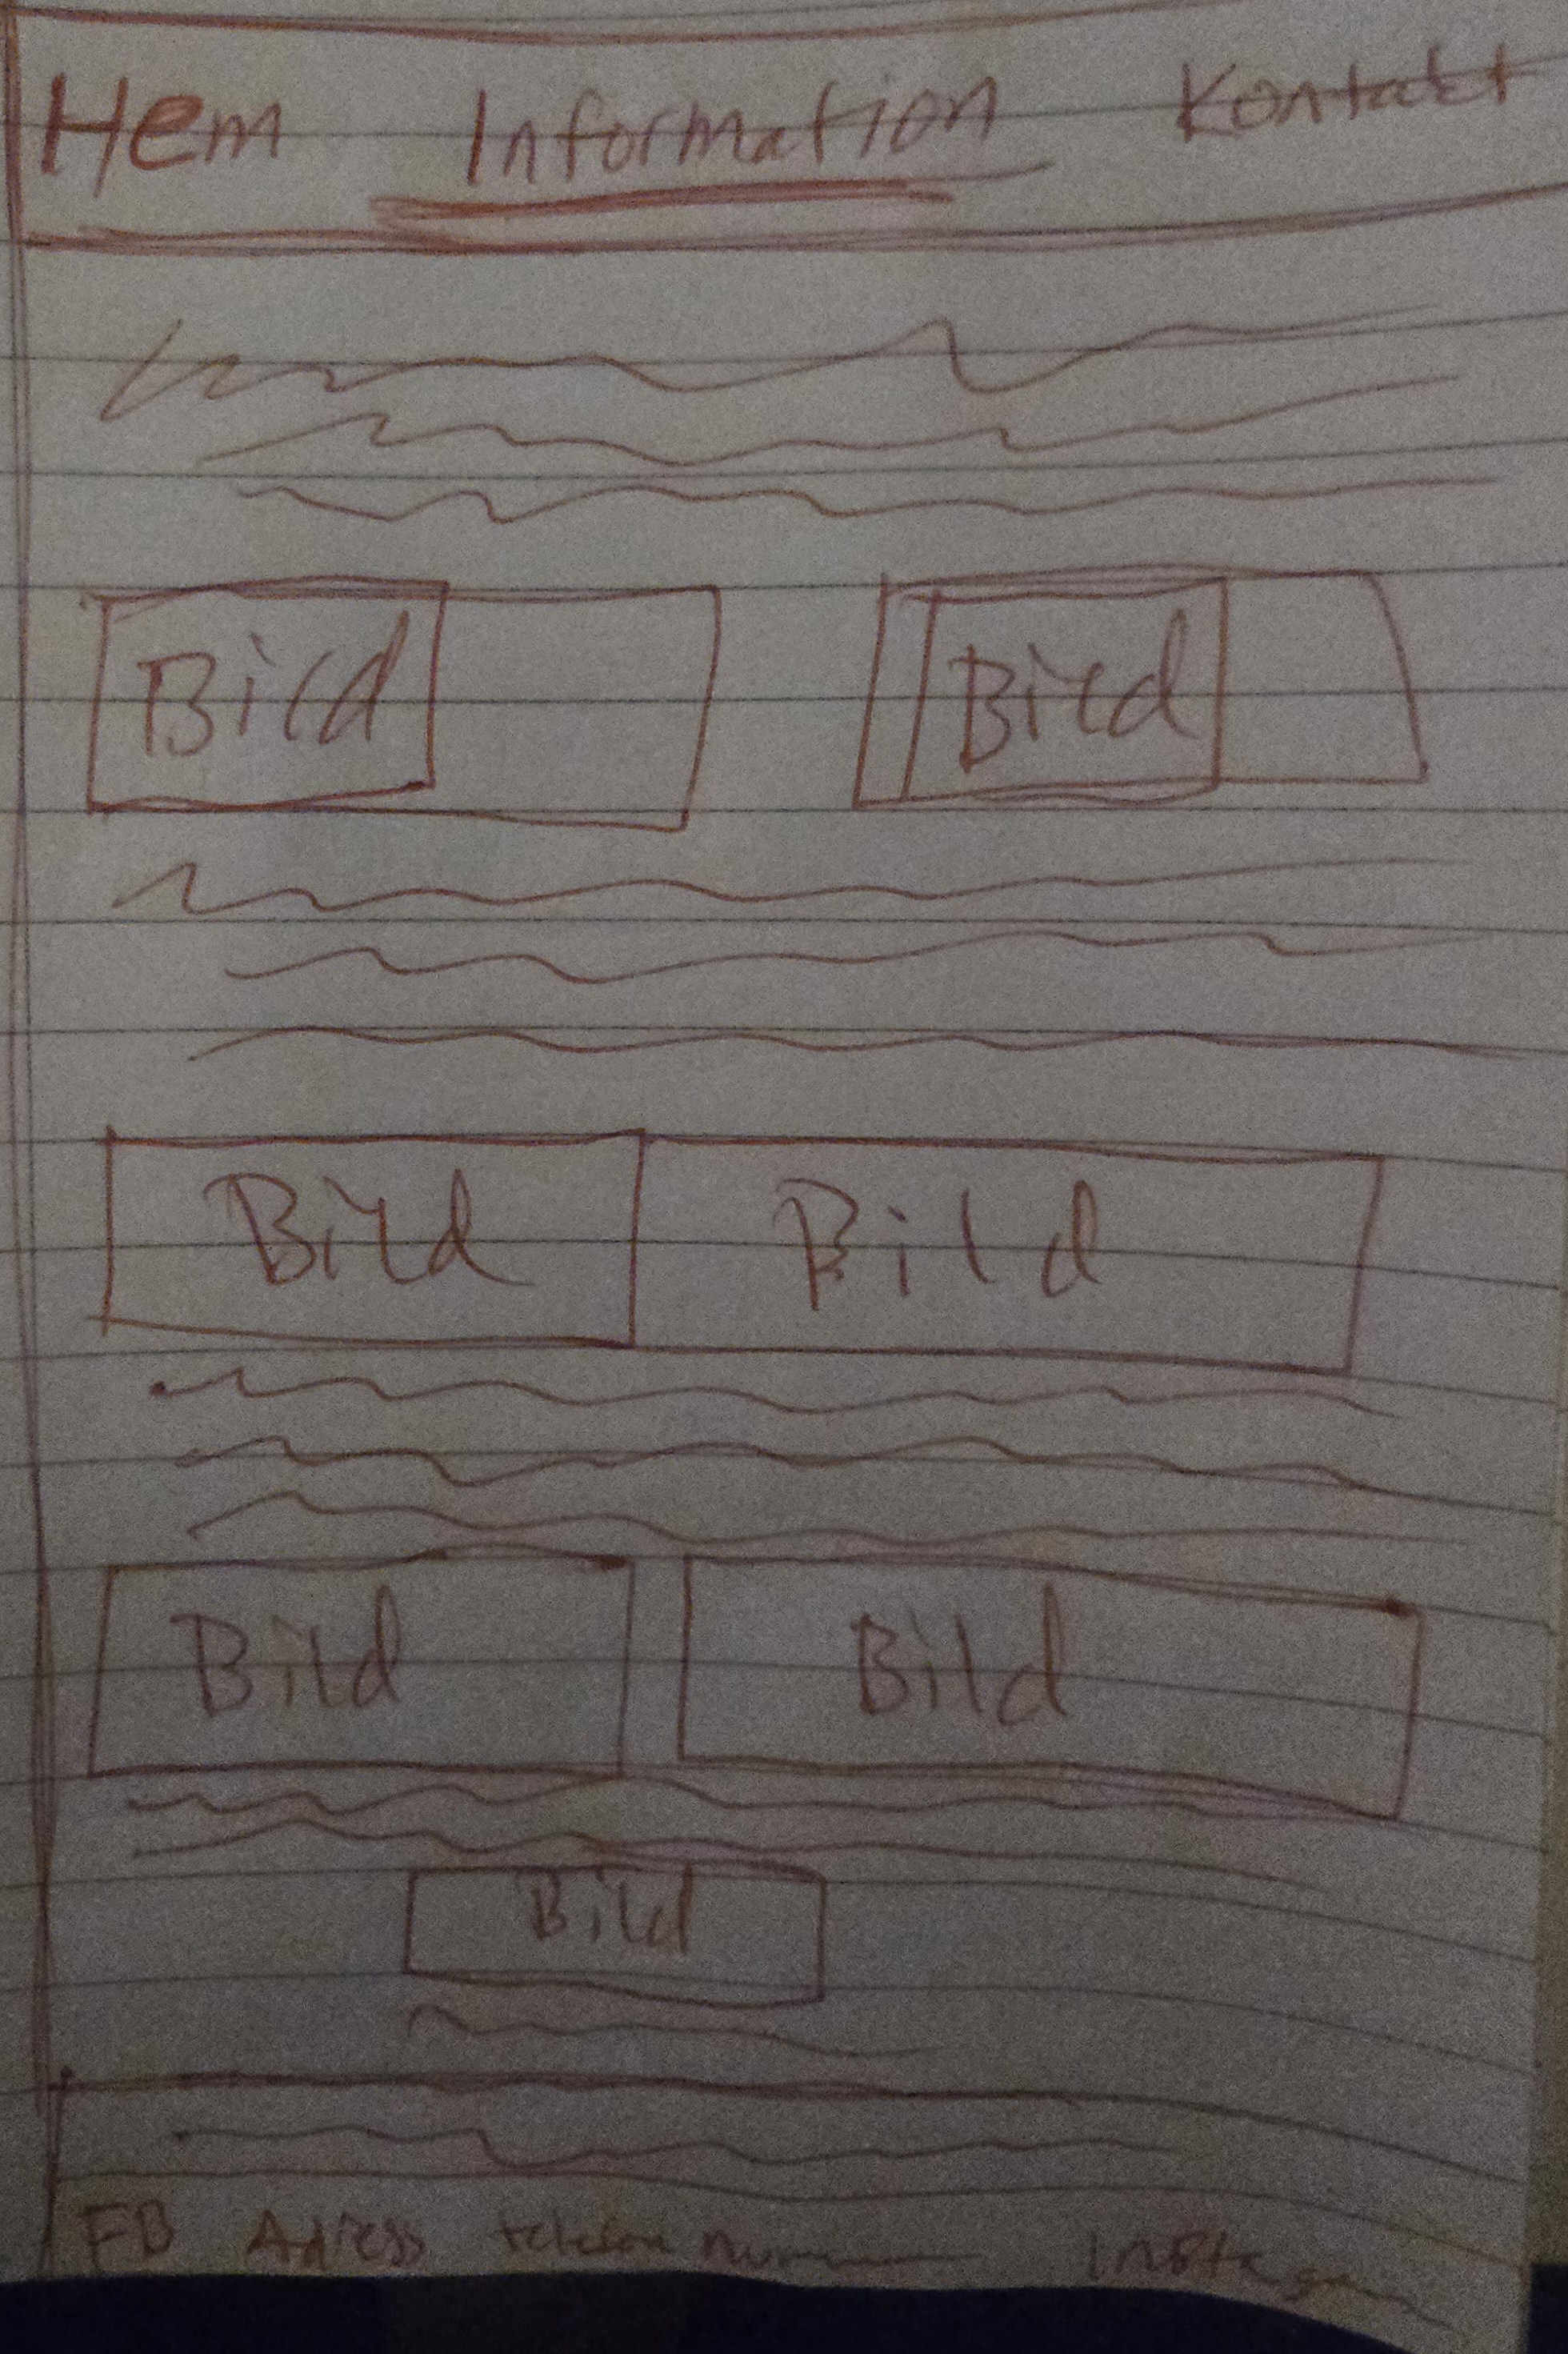 Hem Information Kontakt
Bild Bild
Bild Bild
Bild Bild
Bild
FB Adress telefon